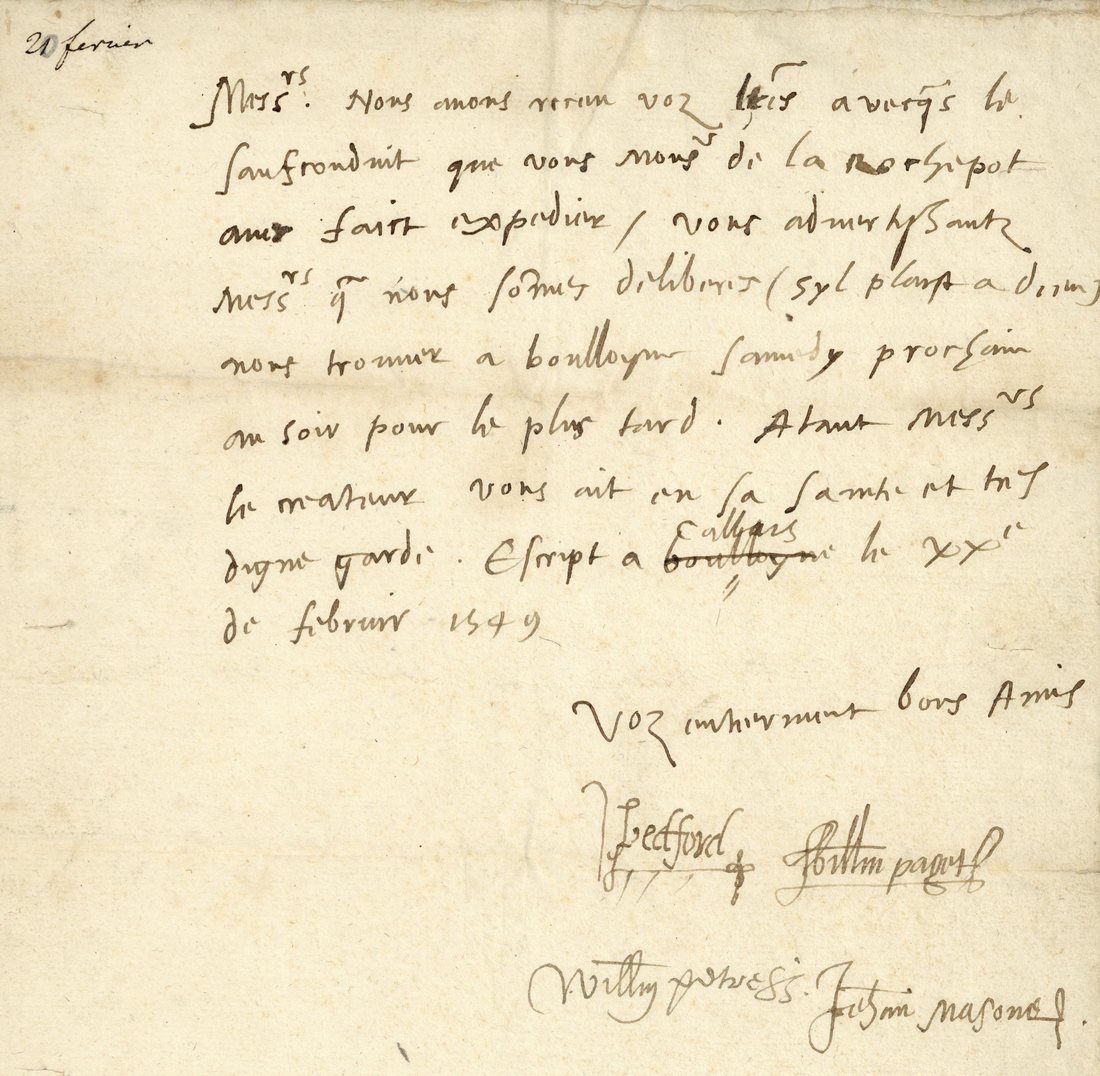 21 fevrier
Mess.rs Nous avons receu voz lr̃es avecq̃s le
saufconduit que vous Monsr de la Rochepot
aves faict expedier / vous advertissantz
Messrs q̃ nous som̃es deliberes (syl plaist a dieu)
nous trouver a boulloyne samedy prochain
au soir pour le plus tard . Atant Messrs
le createur vous ait en sa sainte et tres
digne garde . Escript a boulloyne Callais le xxe
de februier 1549
Voz entierement bons Amis
J Bedford Willm paget
Willm petre Jehan Masone .